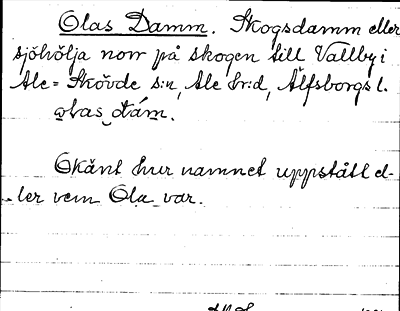 Olas Damm. Skogsdamm eller
sjöhölja norr på skogen till Vallby i
Ale=Skövde s:n, Ale hr:d, Älfsborgs l.
ɷlas dám.
Okänt hur namnet uppstått el-
ler vem Ola var.